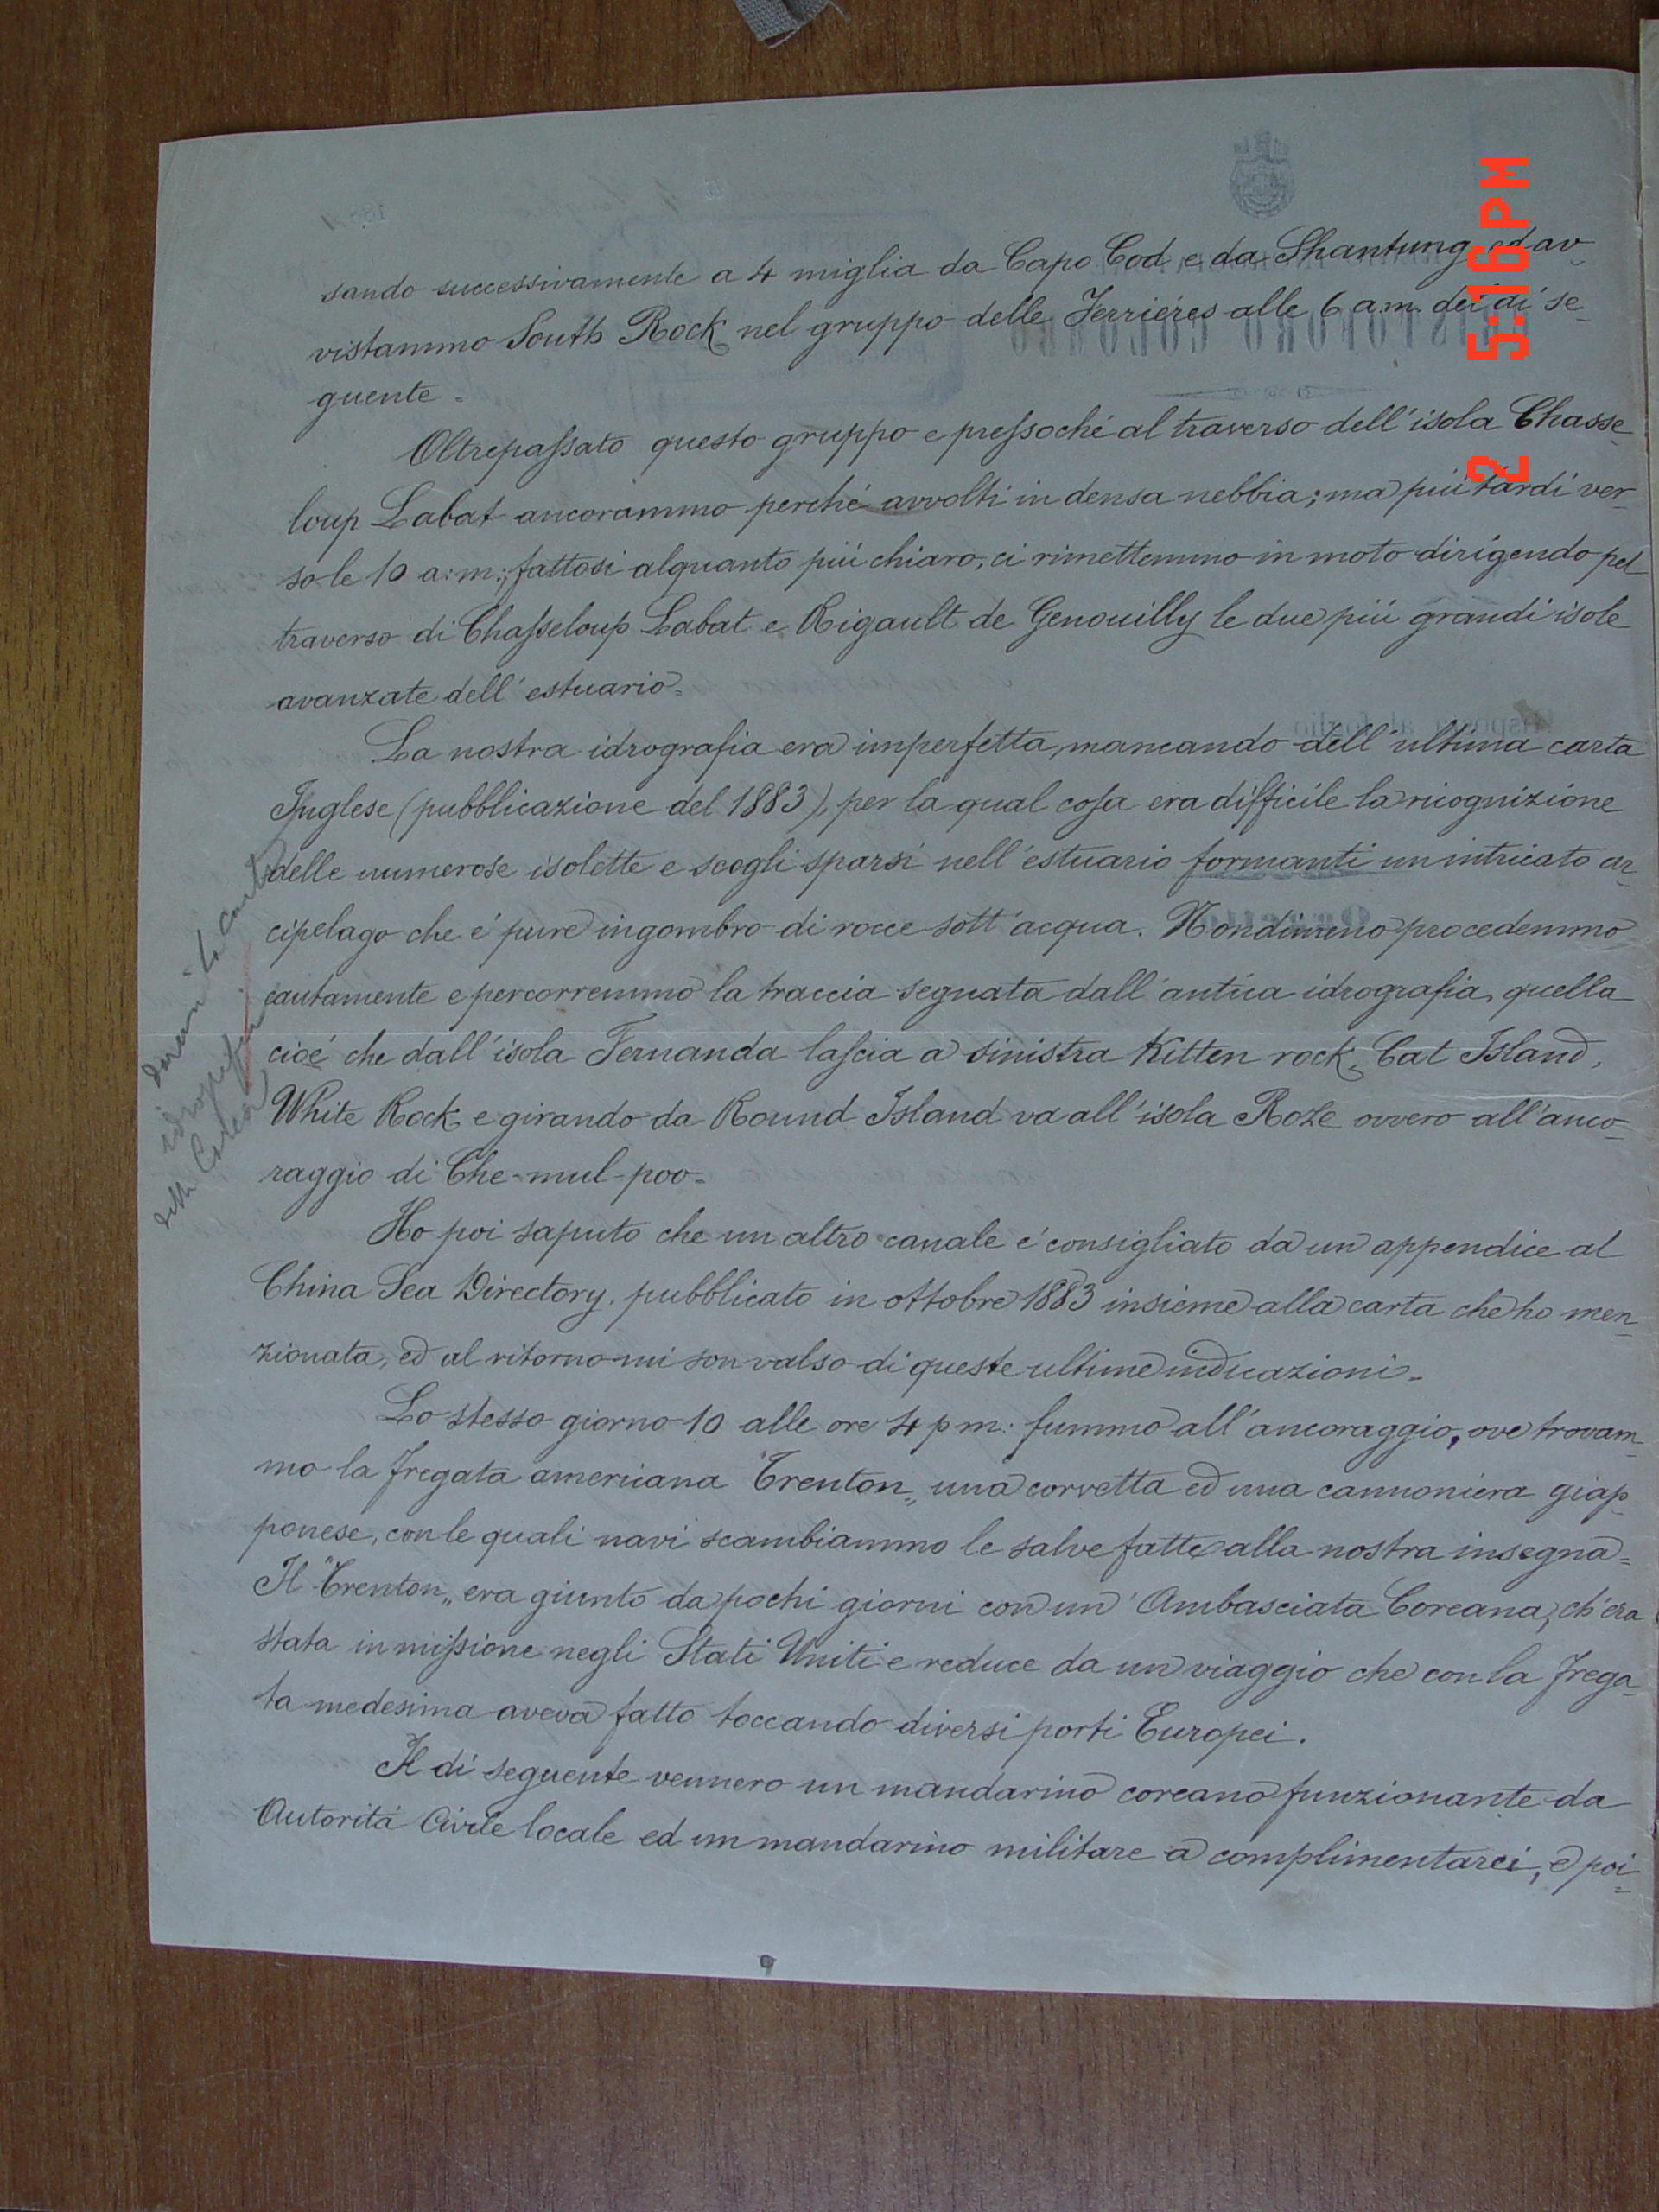 sando successivamente a 4 miglia da Capo Cod e da Shantung ed av-
vistammo South Rock nel gruppo delle Ferriéres alle 6 a.m. del dí se-
guente.
Oltrepassato questo gruppo e pressoché al traverso dell'isola Chasse-
loup Labat ancorammo perché avvolti in densa nebbia; ma piú tardi ver-
so le 10 a:m:, fattosi alquanto piú chiaro, ci rimettemmo in moto dirigendo pel
traverso di Chasseloup Labat e Rigault de Genouilly le due piú grandi isole
avanzate dell'estuario.
La nostra idrografia era imperfetta, mancando dell'ultima carta
Inglese (pubblicazione del 1883), per la qual cosa era difficile la ricognizione
delle numerose isolette e scogli sparsi nell'estuario formanti un intricato ar-
cipelago che é pure ingombro di rocce sott'acqua. Nondimeno procedemmo
cautamente e percorremmo la traccia segnata dall'antica idrografia, quella
cioé che dall'isola Fernanda lascia a sinistra Kitten rock, Cat Island,
White Rock e girando da Round Island va all'isola Roze ovvero all'anco-
raggio di Che-mul-poo.
Ho poi saputo che un altro canale é consigliato da un appendice al
China Sea Directory, pubblicato in ottobre 1883 insieme alla carta che ho men-
zionata, ed al ritorno mi son valso di queste ultime indicazioni.
Lo stesso giorno 10 alle ore 4 p m: fummo all'ancoraggio, ove trovam-
mo la fregata americana "Trenton„ una corvetta ed una cannoniera giap-
ponese, con le quali navi scambiammo le salve fatte alla nostra insegna=
Il "Trenton„ era giunto da pochi giorni con un'Ambasciata Coreana, ch'era
stata in missione negli Stati Uniti e reduce da un viaggio che con la frega-
ta medesima aveva fatto toccando diversi porti Europei.
Il dí seguente vennero un mandarino coreano funzionante da
Autoritá Civile locale ed un mandarino militare a complimentarci, e poi=
idrografica
della Corea
2 5:16PM